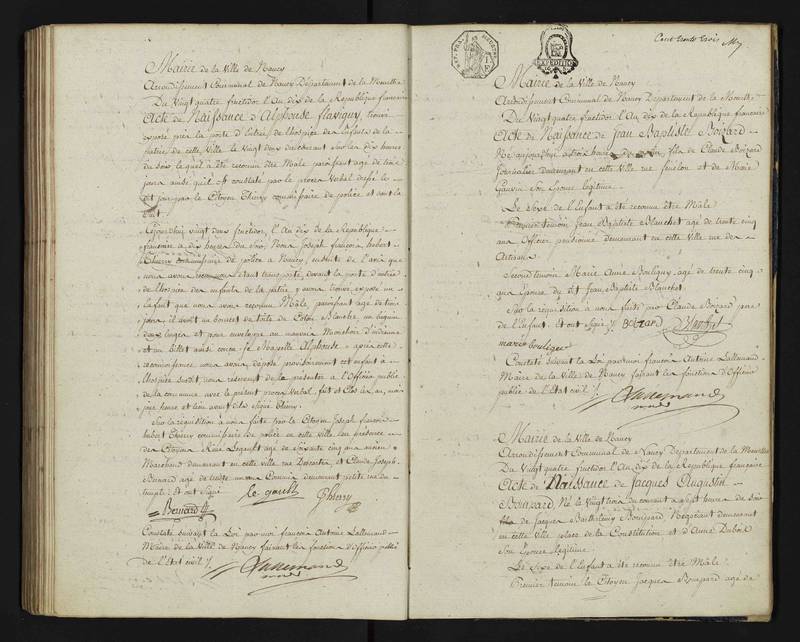 Mairie de la Ville de Nancy
Arrondissement Communal de Nancy Département de la Meurthe
Du Vingt quatre fructidor l'An dix de la Republique francaise
Acte de Naissance d'Alphonse flavigny, trouvé
exposé près la porte d'Entrée de l'hospice des Enfants de la
patrie de cette Ville le Vingt deux du courant sur les dix heures
du soir lequel a été reconnu être Male paraissant agé de trois
jours ainsi qu'il est constaté par le procès Verbal dressé le
dit jour par le Citoyen Thiery commissaire de police et dont la
Cejourd'huy vingt deux fructidor, l'An dix de la Republique
francaise a dix heures du soir, Nous Joseph françois hubert
Thierry commissaire de police a Nancy, ensuite de l'avis que
nous avons reçu nous etant transporté, devant la porte d'entrée
de l'hospice des enfants de la patrie y avons trouvé exposé un
Enfant que nous avons reconnu Mâle, paraissant agé de trois
jours, il avoit un bonnet de toile de Coton Blanche, un béguin
deux langes et pour envelope un mauvais Mouchoir d'indienne
et un Billet ainsi conçu je M'apelle Alphonse, après cette
reconnoissance nous avons déposé provisoirement cet enfant à
l'hospice sus dit, nous réservant de le présenter a l'Officier public
de la commune avec le présent procès Verbal, fait et Clos les an, mois
jour heure et lieu avant dits. Signé Thiery.
Sur la requisition à nous faite par le Citoyen Joseph françois
hubert Thiery commissaire de police en cette ville En présence
des Citoyens René Legault agé de soixante cinq ans ancien
Marchand demeurant en cette ville rue Descartes, et Claude Joseph
Bernard agé de trente un ans Commis demeurant petite rue du
temple. Et ont signé le gault Thierry
Bernard
Constaté suivant la Loi par moi françois Antoine Lallemand
Maire de la Ville de Nancy faisant les fonctions d'Officier public
de l'Etat civil.
Lallemand
maire
Cent trente trois
EXPEDITION
Mairie de la Ville de Nancy
Arrondissement Communal de Nancy Département de la Meurthe
Du Vingt quatre fructidor l'An dix de la Republique francaise
Acte de Naissance de Jean Baptiste Boizard
Né aujourd'huy a trois heures fils de Claude Boizard
Journalier demeurant en cette Ville rue fenelon et de Marie
Gauvin Son Epouse légitime.
Le Sexe de l'Enfant a été reconnu être Mâle.
Premier témoin Jean Baptiste Blanchet agé de trente cinq
ans Officier pensionné demeurant en cette Ville rue des
Artisans
Second témoin Marie Anne Bouligny agé de trente cinq
ans Epouse du dit Jean Baptiste Blanchet
Sur la requisition a nous faite par Claude Boizard pere
de l'Enfant. Et ont Signé Boizard Blanchet
marie bouligny
Constaté suivant la Loi par moi francois Antoine Lallemand
Maire de la Ville de Nancy faisant les fonctions d'Officier
public de l'Etat civil
Lallemand
maire
Mairie de la Ville de Nancy
Arrondissement Communal de Nancy Département de la Meurthe
Du Vingt quatre fructidor l'An dix de la Republique francaise
Acte de Naissance de Jacques Augustin
Bouzard, Né le Vingt trois du courant a sept heures du soir
fils de Jacques Barthelemy Bouzard Négociant demeurant
en cette ville place de la Constitution et d'Anne Dubois
Son Epouse légitime.
Le Sexe de l'Enfant a été reconnu être Mâle.
Premier témoin le Citoyen Jacques Bouzard agé de